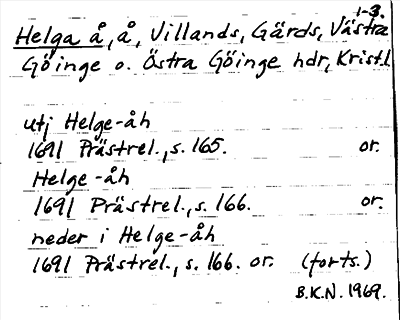 1-3.
Helga å, å, Villands, Gärds, Västra
Göinge o. Östra Göinge hdr, Krist.l
utj Helge-åh
1691 Prästrel., s. 165. or.
Helge-åh
1691 Prästrel., s. 166. or.
neder i Helge-åh
1691 Prästrel., s. 166. or. (forts.)
B.K.N. 1969.